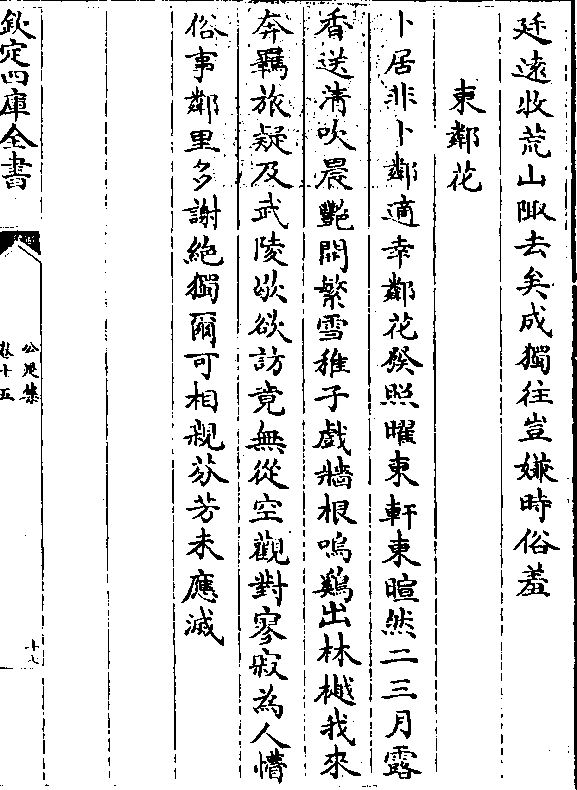 廷遠收荒山陬去矣成獨往豈嫌時俗羞
東鄰花
卜居非卜鄰適幸鄰花發照曜東軒東暄然二三月露
香送清吹晨艷開繁雪稚子戲牆根鳴鷄出林樾我來
奔羈旅疑及武陵歇欲訪竟無從空觀對寥寂為人懵
俗事鄰里多謝絶獨爾可相親芬芳未應滅
欽定四庫全書
公是集
卷十五